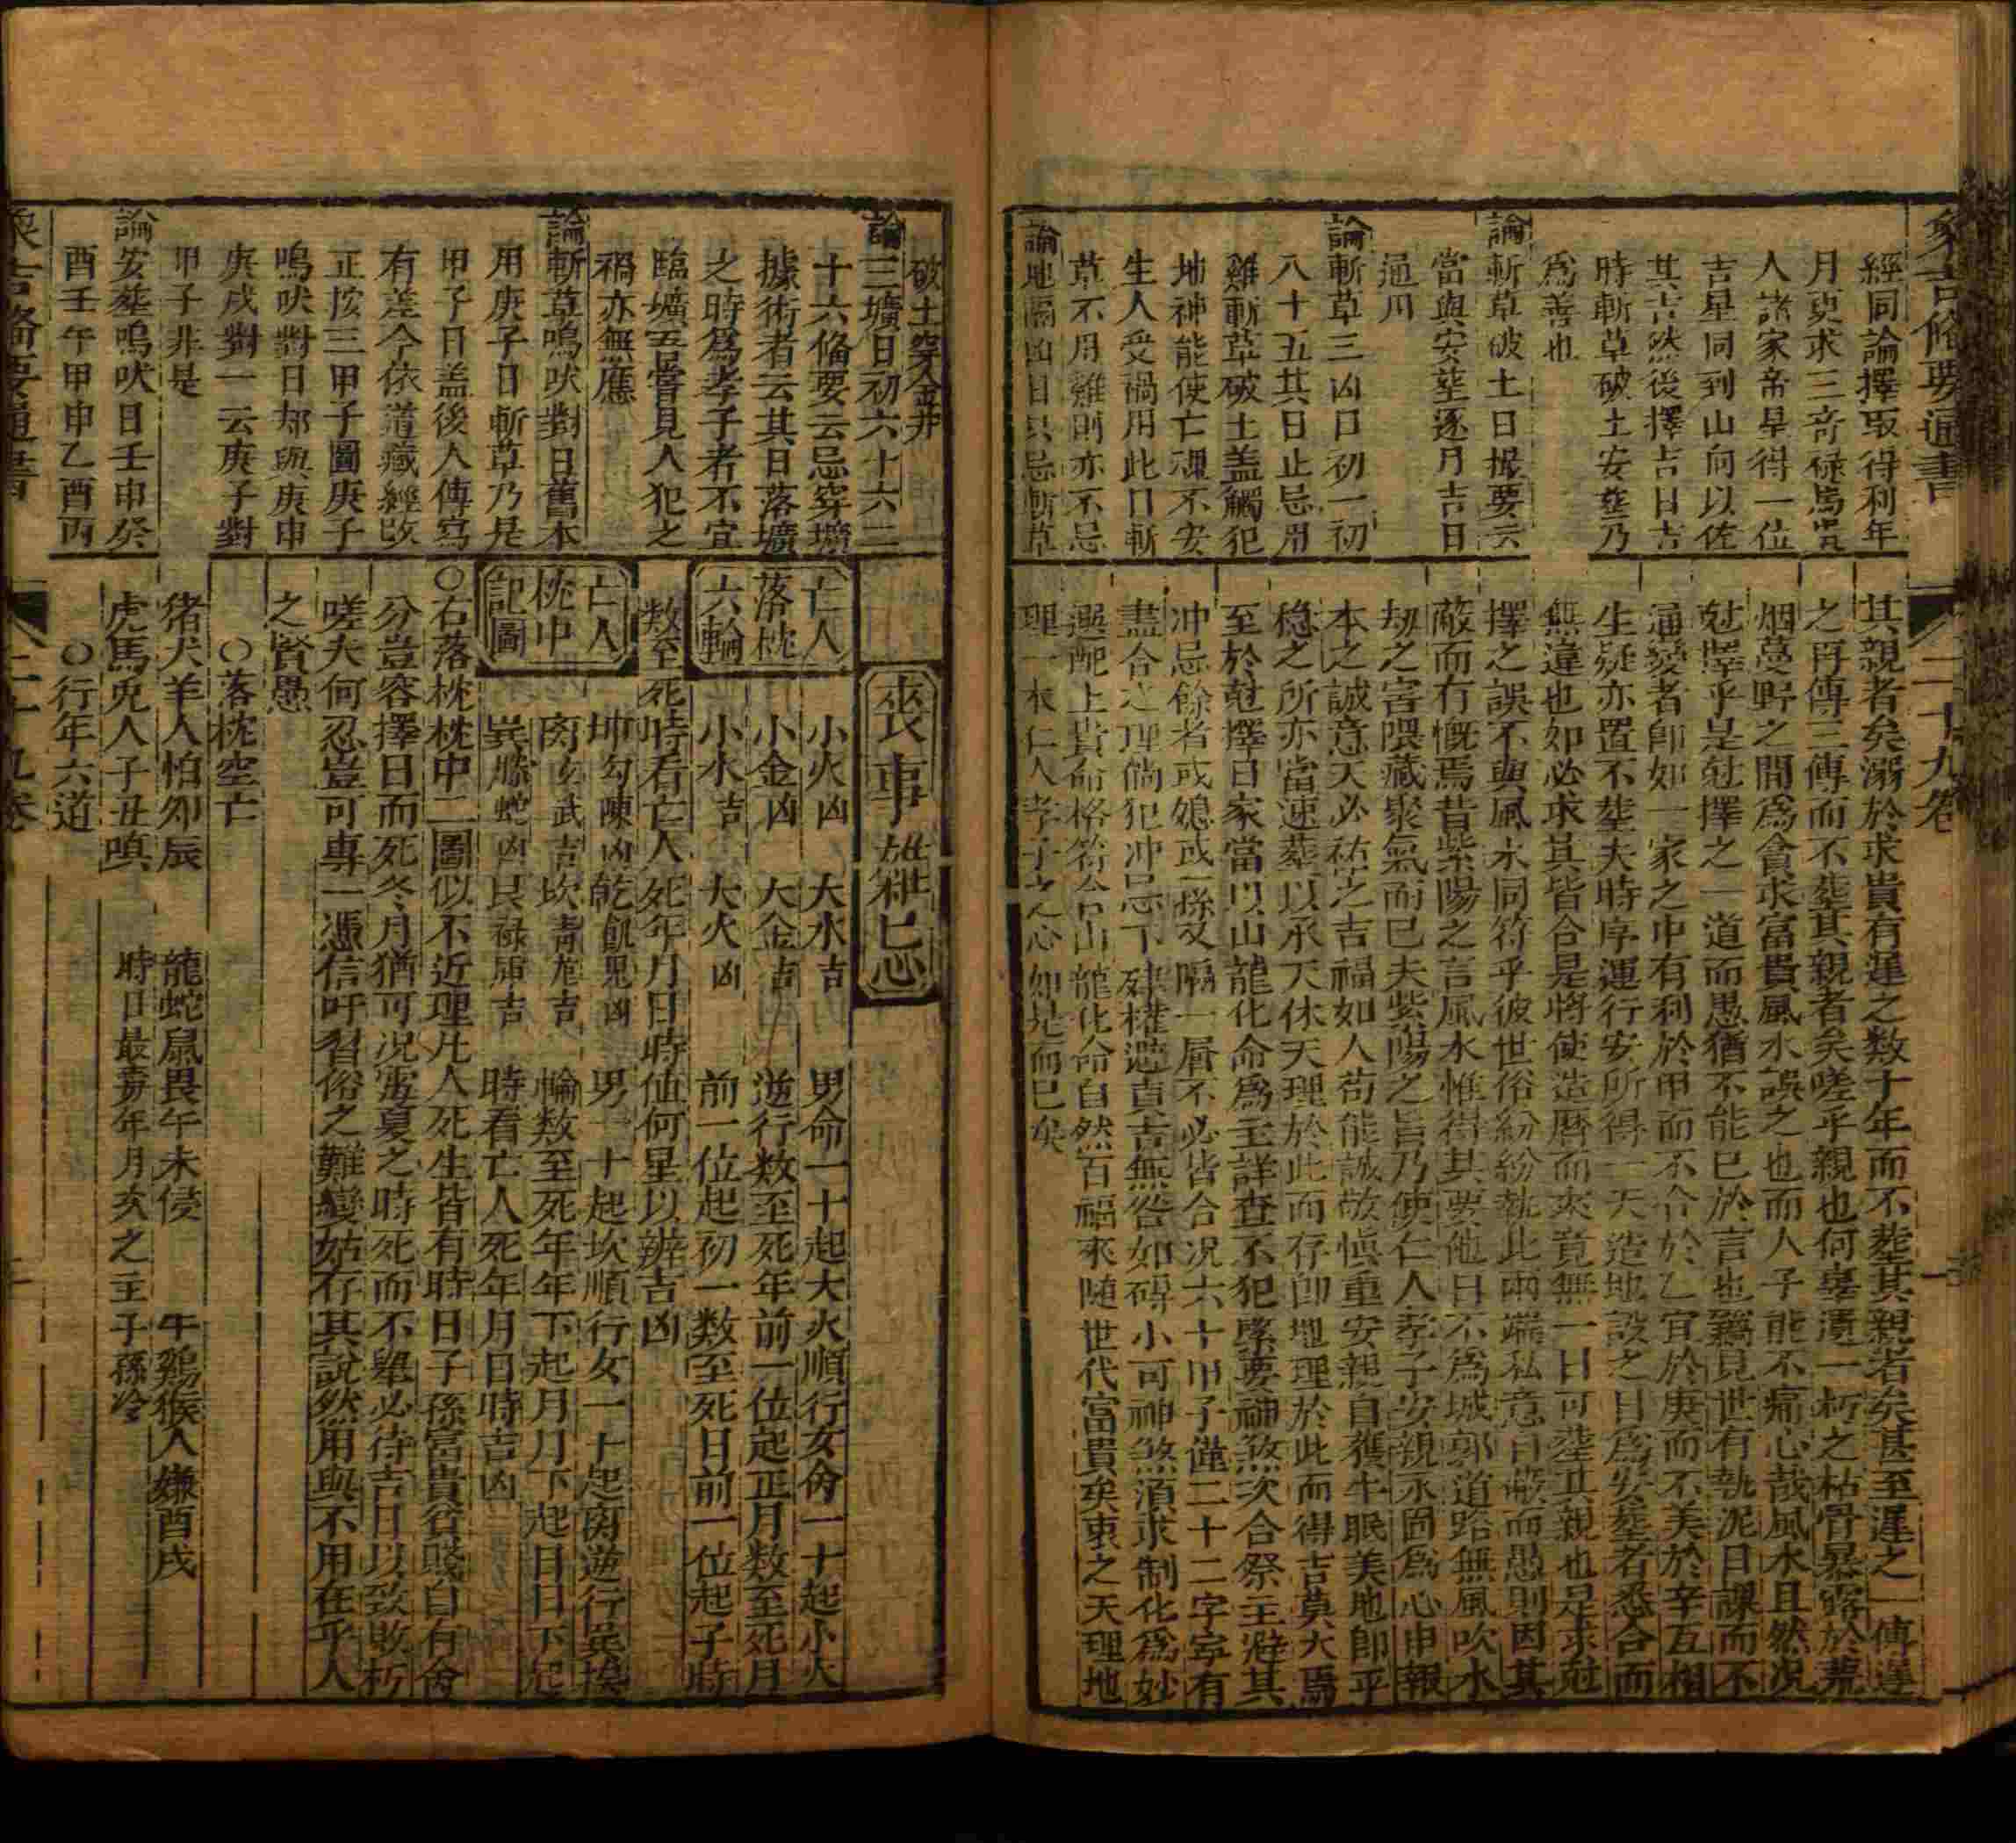 象吉備要通書
二十九卷
經同論擇取得利年
月更求三奇祿馬貴
人諸家帝星得一位
吉星同到山向以佐
其吉然後擇吉日吉
時斬草破土安塟乃
爲善也
論斬草破土日撮要云
當與安塟逐月吉日
通用
論斬草三凶日初一初
八十五其日止忌用
雞斬草破土盖觸犯
地神能使亡魂不安
生人受禍用此日斬
草不用雞則亦不忌
論地隔凶日只忌斬草
其親者矣溺於求貴有遲之数十年而不塟其親者矣甚至遲之一傳遲
之再傳三傳而不塟其親者矣嗟乎親也何辜瀆一析之枯骨暴露於荒
烟蔓野之間爲貪求富貴風水誤之也而人子能不痛心哉風水且然况
尅擇乎是尅擇之一道而愚猶不能已於言也竊見世有執泥日課而不
通變者即如一家之中有利於甲而不合於乙宜於庚而不美於辛互相
生疑亦置不塟夫時序運行安所得一天造地設之日爲安塟者悉合而
無違也如必求其皆合是將使造曆而來竟無一日可塟其親也是求尅
擇之誤不與風水同符乎彼世俗紛紛執此兩端私意日蔽而愚則因其
蔽而有慨焉昔紫陽之言風水惟得其要他日不爲城郭道路無風吹水
刼之害隈藏聚氣而已夫紫陽之旨乃使仁人孝子安親永固爲心由報
本之誠意天必祐之吉福如人苟能誠敬愼重安親自獲牛眠美地卽乎
稳之所亦當速葬以承天休天理於此而存卽地理於此而得吉莫大焉
至於尅擇日家當以山龍化命爲主詳查不犯緊要神煞次合祭主避其
冲忌餘者或媳或孫又隔一層不必皆合况六十甲子僅二十二字寧有
盡合之理倘犯冲忌下建權避貞吉無咎如碍小可神煞湏求制化爲妙
選配上貴命格符合山龍化命自然百福來随世代富貴矣衷之天理地
理一根仁人孝子之心如是而已矣
破土穿金井
論三壙日初六十六二
十六俻要云忌穿壙
據術者云其日落壙
之時爲孝子者不宜
臨壙吾嘗見人犯之
禍亦無應
論斬草鳴吠對日舊本
用庚子日斬草乃是
甲子日盖後人傳寫
有差今依道藏經改
正按三甲子圖庚子
鳴吠對日却與庚申
庚戌對一云庚子對
甲子非是
論安塟鳴吠日壬申癸
酉壬午甲申乙酉丙
喪事雜忌
亡人落枕六輪
小火凶　大水吉　男命一十起大火順行女命一十起小火
小金凶　大金吉　逆行数至死年前一位起正月数至死月
小水吉　大火凶　前一位起初一数至死日前一位起子時
数至死時看亡人死年月日時值何星以辨吉凶
亡人枕中記圖
坤勾陳凶乾飢鬼凶　男一十起坎順行女一十起离逆行巽挨
离玄武吉坎靑龙吉　輪数至死年年下起月月下起日日下起
巽螣蛇凶艮祿庫吉　時看亡人死年月日時吉凶
○右落枕枕中二圖似不近理凡人死生皆有時日子孫富貴貧賤自有命
分豈容擇日而死冬月猶可况當夏之時死而不舉必待吉日以致敗析
嗟夫何忍豈可專一憑信吁習俗之難變姑存其說然用與不用在乎人
之賢愚
○落枕空亡
猪犬羊人怕卯辰　龍蛇鼠畏午未侵　牛鷄猴人嫌酉戌
虎馬兎人子丑嗔　時日最毒年月亥之主子孫冷
○行年六道
象吉備要通書
二十九卷